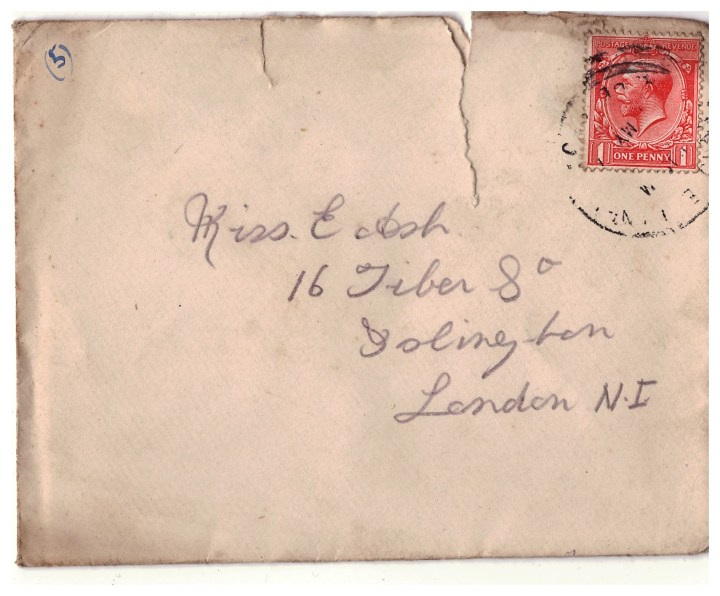 5
POSTAGE REVENUE
1 ONE PENNY 1
Miss. E Ash
16 Tiber Sq
Islington
London N.I